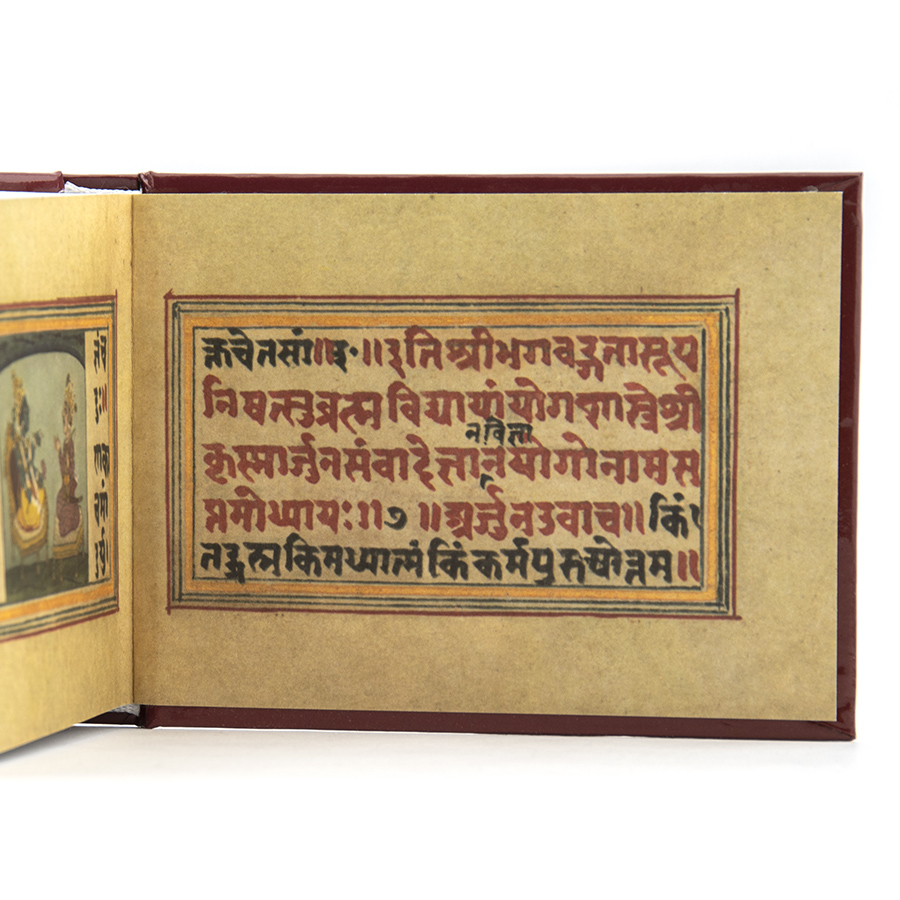 क्तचेतसां॥३०॥इतिश्रीभगवद्गीतासूप
निषत्सुब्रह्मविद्यायांयोगशास्त्रेश्री
नविज्ञा
कृस्मार्जुनसंवादेज्ञानयोगोनामस
प्तमोध्यायः॥७॥अर्जुनउवाच॥किं
तद्ब्रह्मकिमध्यात्मंकिंकर्मपुरुषोत्तम॥